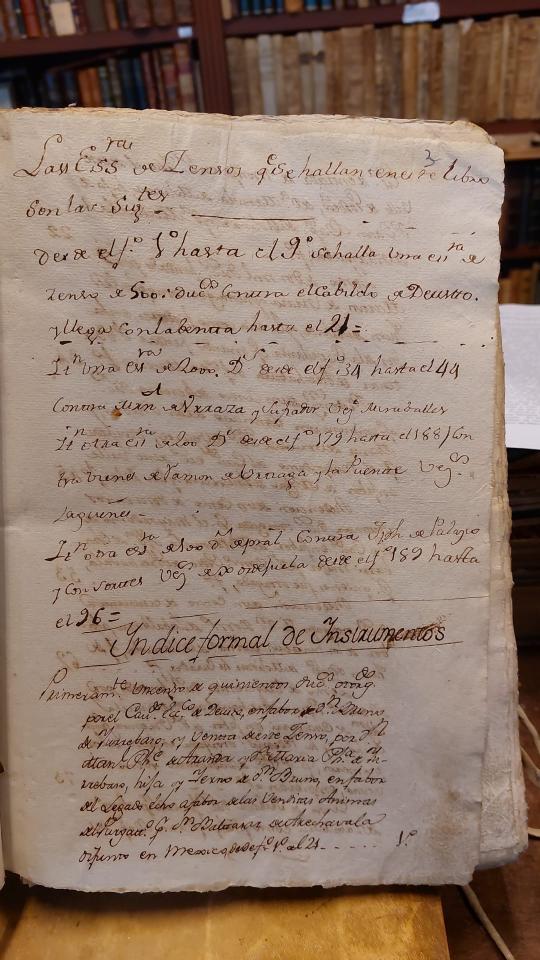 3
Las Ess.ras de Zensos q.e Se hallan en este libro
Son las Sig.tes
desde el f.o 1o hasta el 9o se halla una ess.ra de
zenso de 500 duc.s Contra el Cabildo de Deustto.
y llega Con la benta hasta el 21=
It.n una ess.ra de 200. D.s desde el f.o 34 hasta el 44
Contra de y su fiador Vez.s Miraballes
It.n otra ess.ra de 200 D.s desde el f.o 179 hasta el 188 Con
tra vienes de Ramon de Urriaga y la Puente Vez.o
It.n otra ess.ra de 100 D.s de pral Contra Jph de Palazio
y Consortes Vez.s de desde el f.o 189 hasta
el 96=
Yndice formal de Instrumentos
Primeram.te Un censo de quinientos duc.s otorg.do
por el Cav.do Ecc.co de Deusto, en fabor de D.n Bruno
de Yurrebaso, y Venta de este Zenso, por D.n
y D.a Maria de Yu-
rrebaso, hija, y Yerno de D.n Bruno, en fabor
del Legado echo a fabor de las Venditas Animas
del Purgatt.o D.n Balttasar de Arechavala
difunto en Mexico desde f.o 1o al 21 - - - - - 1o